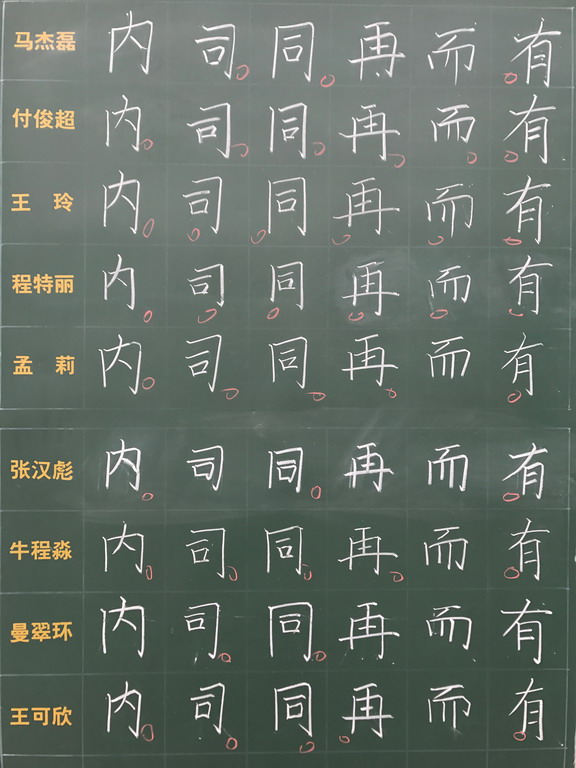 马杰磊 内 司 同 再 而 有
付俊超 内 司 同 再 而 有
王 玲 内 司 同 再 而 有
程特丽 内 司 同 再 而 有
孟 莉 内 司 同 再 而 有
张汉彪 内 司 同 再 而 有
牛程淼 内 司 同 再 而 有
曼翠环 内 司 同 再 而 有
王可欣 内 司 同 再 而 有